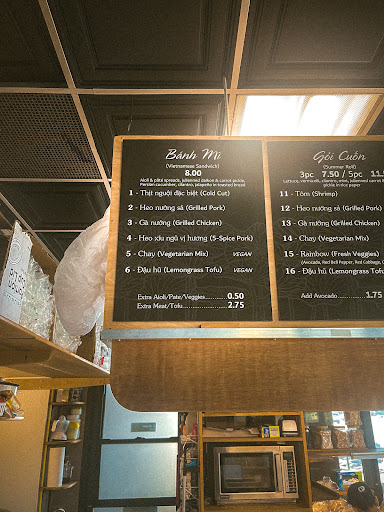 Bánh Mì
(Vietnamese Sandwich)
8.00
Aioli & pâté spreads, julienned daikon & carrot pickle,
Persian cucumber, cilantro, jalapeño in toasted bread
1 - Thịt nguội đặc biệt (Cold Cut)
2 - Heo nướng sả (Grilled Pork)
3 - Gà nướng (Grilled Chicken)
4 - Heo xíu ngũ vị hương (5-Spice Pork)
5 - Chay (Vegetarian Mix) VEGAN
6 - Đậu hũ (Lemongrass Tofu) VEGAN
Extra Aioli/Pate/Veggies 0.50
Extra Meat/Tofu 2.75
Gỏi Cuốn
(Summer Roll)
3pc 7.50 / 5pc 11.
Lettuce, vermicelli, cilantro, mint, julienned carrot
pickle in rice paper
11 - Tôm (Shrimp)
12 - Heo nướng sả (Grilled Pork)
13 - Gà nướng (Grilled Chicken)
14 - Chay (Vegetarian Mix)
15 - Rainbow (Fresh Veggies)
(Avocado, Red Bell Pepper, Red Cabbage,
16 - Đậu hũ (Lemongrass Tofu
Add Avocado 1.75